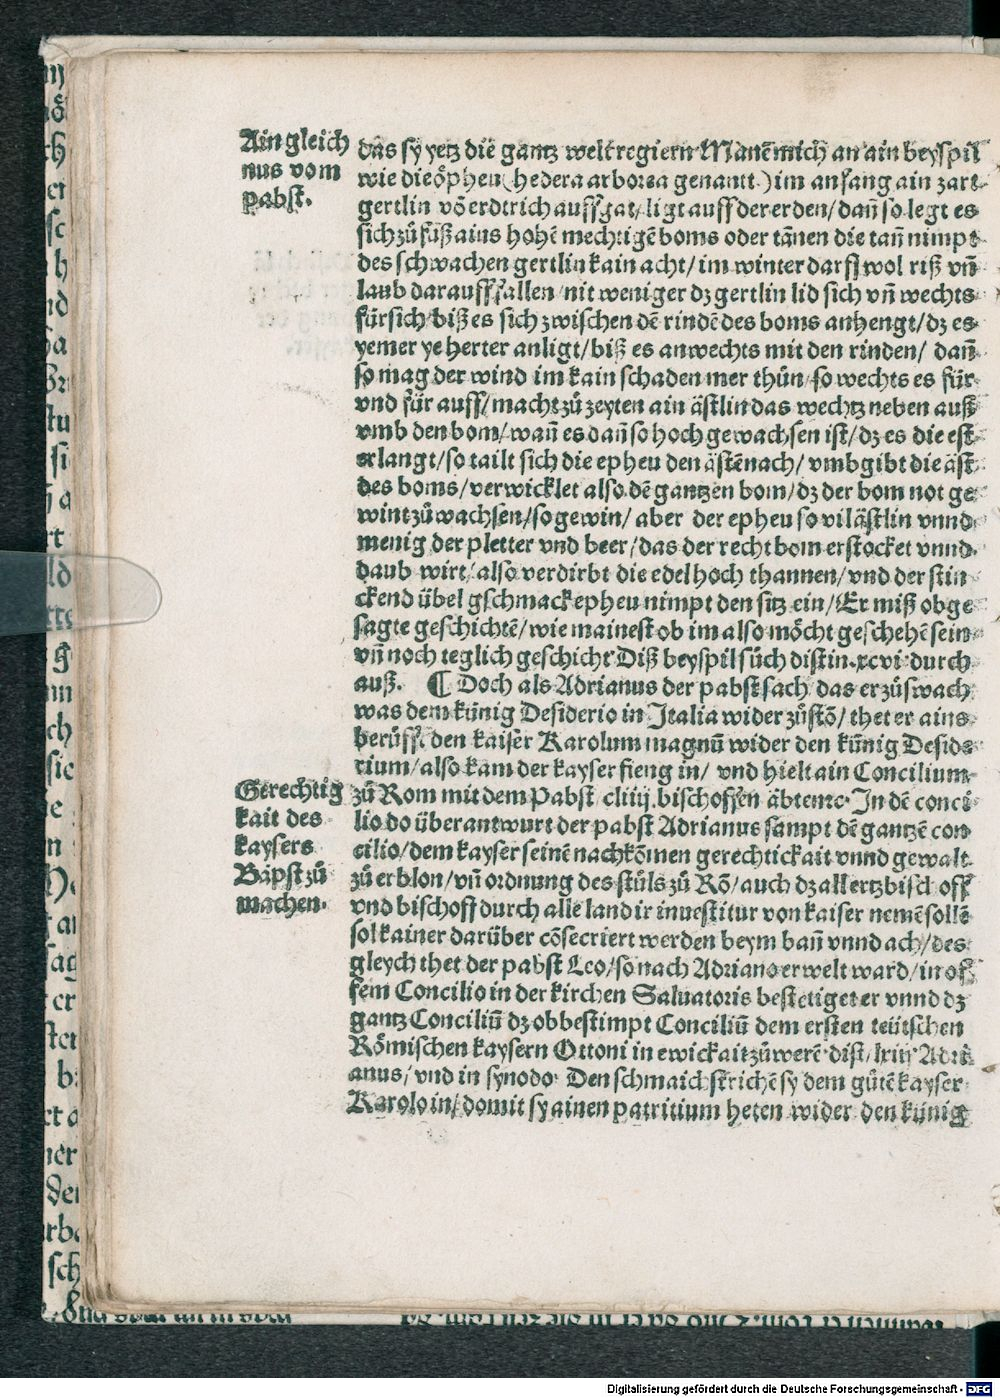 Ain gleich
nus vom
pabst.
das sy yetz die gantz welt regiern Manẽ mich an ain beyspil
wie die öpheu (hedera arborea genantt) im anfang ain zart
gertlin võ erdtrich auff gat/ ligt auff der erden/ dañ so legt es
sich zů fůß ains hohẽ mechtigẽ boms oder tãnen die tañ nimpt
des schwachen gertlin kain acht/ im winter darff wol riß vñ
laub darauff fallen/ nit weniger dz gertlin lid sich vñ wechts
fürsich/ biß es sich zwischen dẽ rindẽ des boms anhengt/ dz es
yemer ye herter anligt/ biß es anwechts mit den rinden/ dañ
so mag der wind im kain schaden mer thůn/ so wechts es für
vnd für auff/ macht zů zeyten ain ästlin das wechtz neben auß
vmb den bom/ wañ es dañ so hoch gewachsen ist/ dz es die est
erlangt/ so tailt sich die epheu den ästẽ nach/ vmbgibt die äst
des boms/ verwicklet also dẽ gantzen bom/ dz der bom not ge
wint zů wachsen/ so gewin/ aber der epheu so vil ästlin vnnd
menig der pletter vnd beer/ das der recht bom erstocket vnnd
daub wirt/ also verdirbt die edel hoch thannen/ vnd der stin
ckend übel gschmack epheu nimpt den sitz ein/ Er miß obge
sagte geschichtẽ/ wie mainest ob im also möcht geschehẽ sein
vñ noch teglich geschicht Diß beyspil sůch distin. xcvi. durch
auß. ¶ Doch als Adrianus der pabst sach das er zů swach
was dem künig Desiderio in Italia wider zůstõ/ thet er ains
berůfft den kaiser Karolum magnũ wider den künig Deside
rium/ also kam der kayser fieng in/ vnd hielt ain Concilium
Gerechtig
kait des
kaysers
Bäpst zů
machen.
zů Rom mit dem Pabst cliiij. bischoffen äbten ꝛc. In dẽ conci
lio do überantwurt der pabst Adrianus sampt dẽ gantzẽ con
cilio/ dem kayser seinẽ nachkõmen gerechtickait vnnd gewalt
zů erblon/ vñ ordnung des stůls zů Rõ/ auch dz all ertzbischoff
vnd bischoff durch alle land ir inuestitur von kaiser nemẽ sollẽ
sol kainer darüber cõsecriert werden beym bañ vnnd ach/ des
gleych thet der pabst Leo/ so nach Adriano erwelt ward/ in of
fem Concilio in der kirchen Saluatoris bestetiget er vnnd dz
gantz Conciliũ dz obbestimpt Conciliũ dem ersten teütschen
Römischen kaysern Ottoni in ewickait zů werẽ dist/ lxiij Adri
anus/ vnd in synodo Den schmaich strichẽ sy dem gůtẽ kayser
Karolo in/ domit sy ainen patritium heten wider den künig
Digitalisierung gefördert durch die Deutsche Forschungsgemeinschaft - DFG